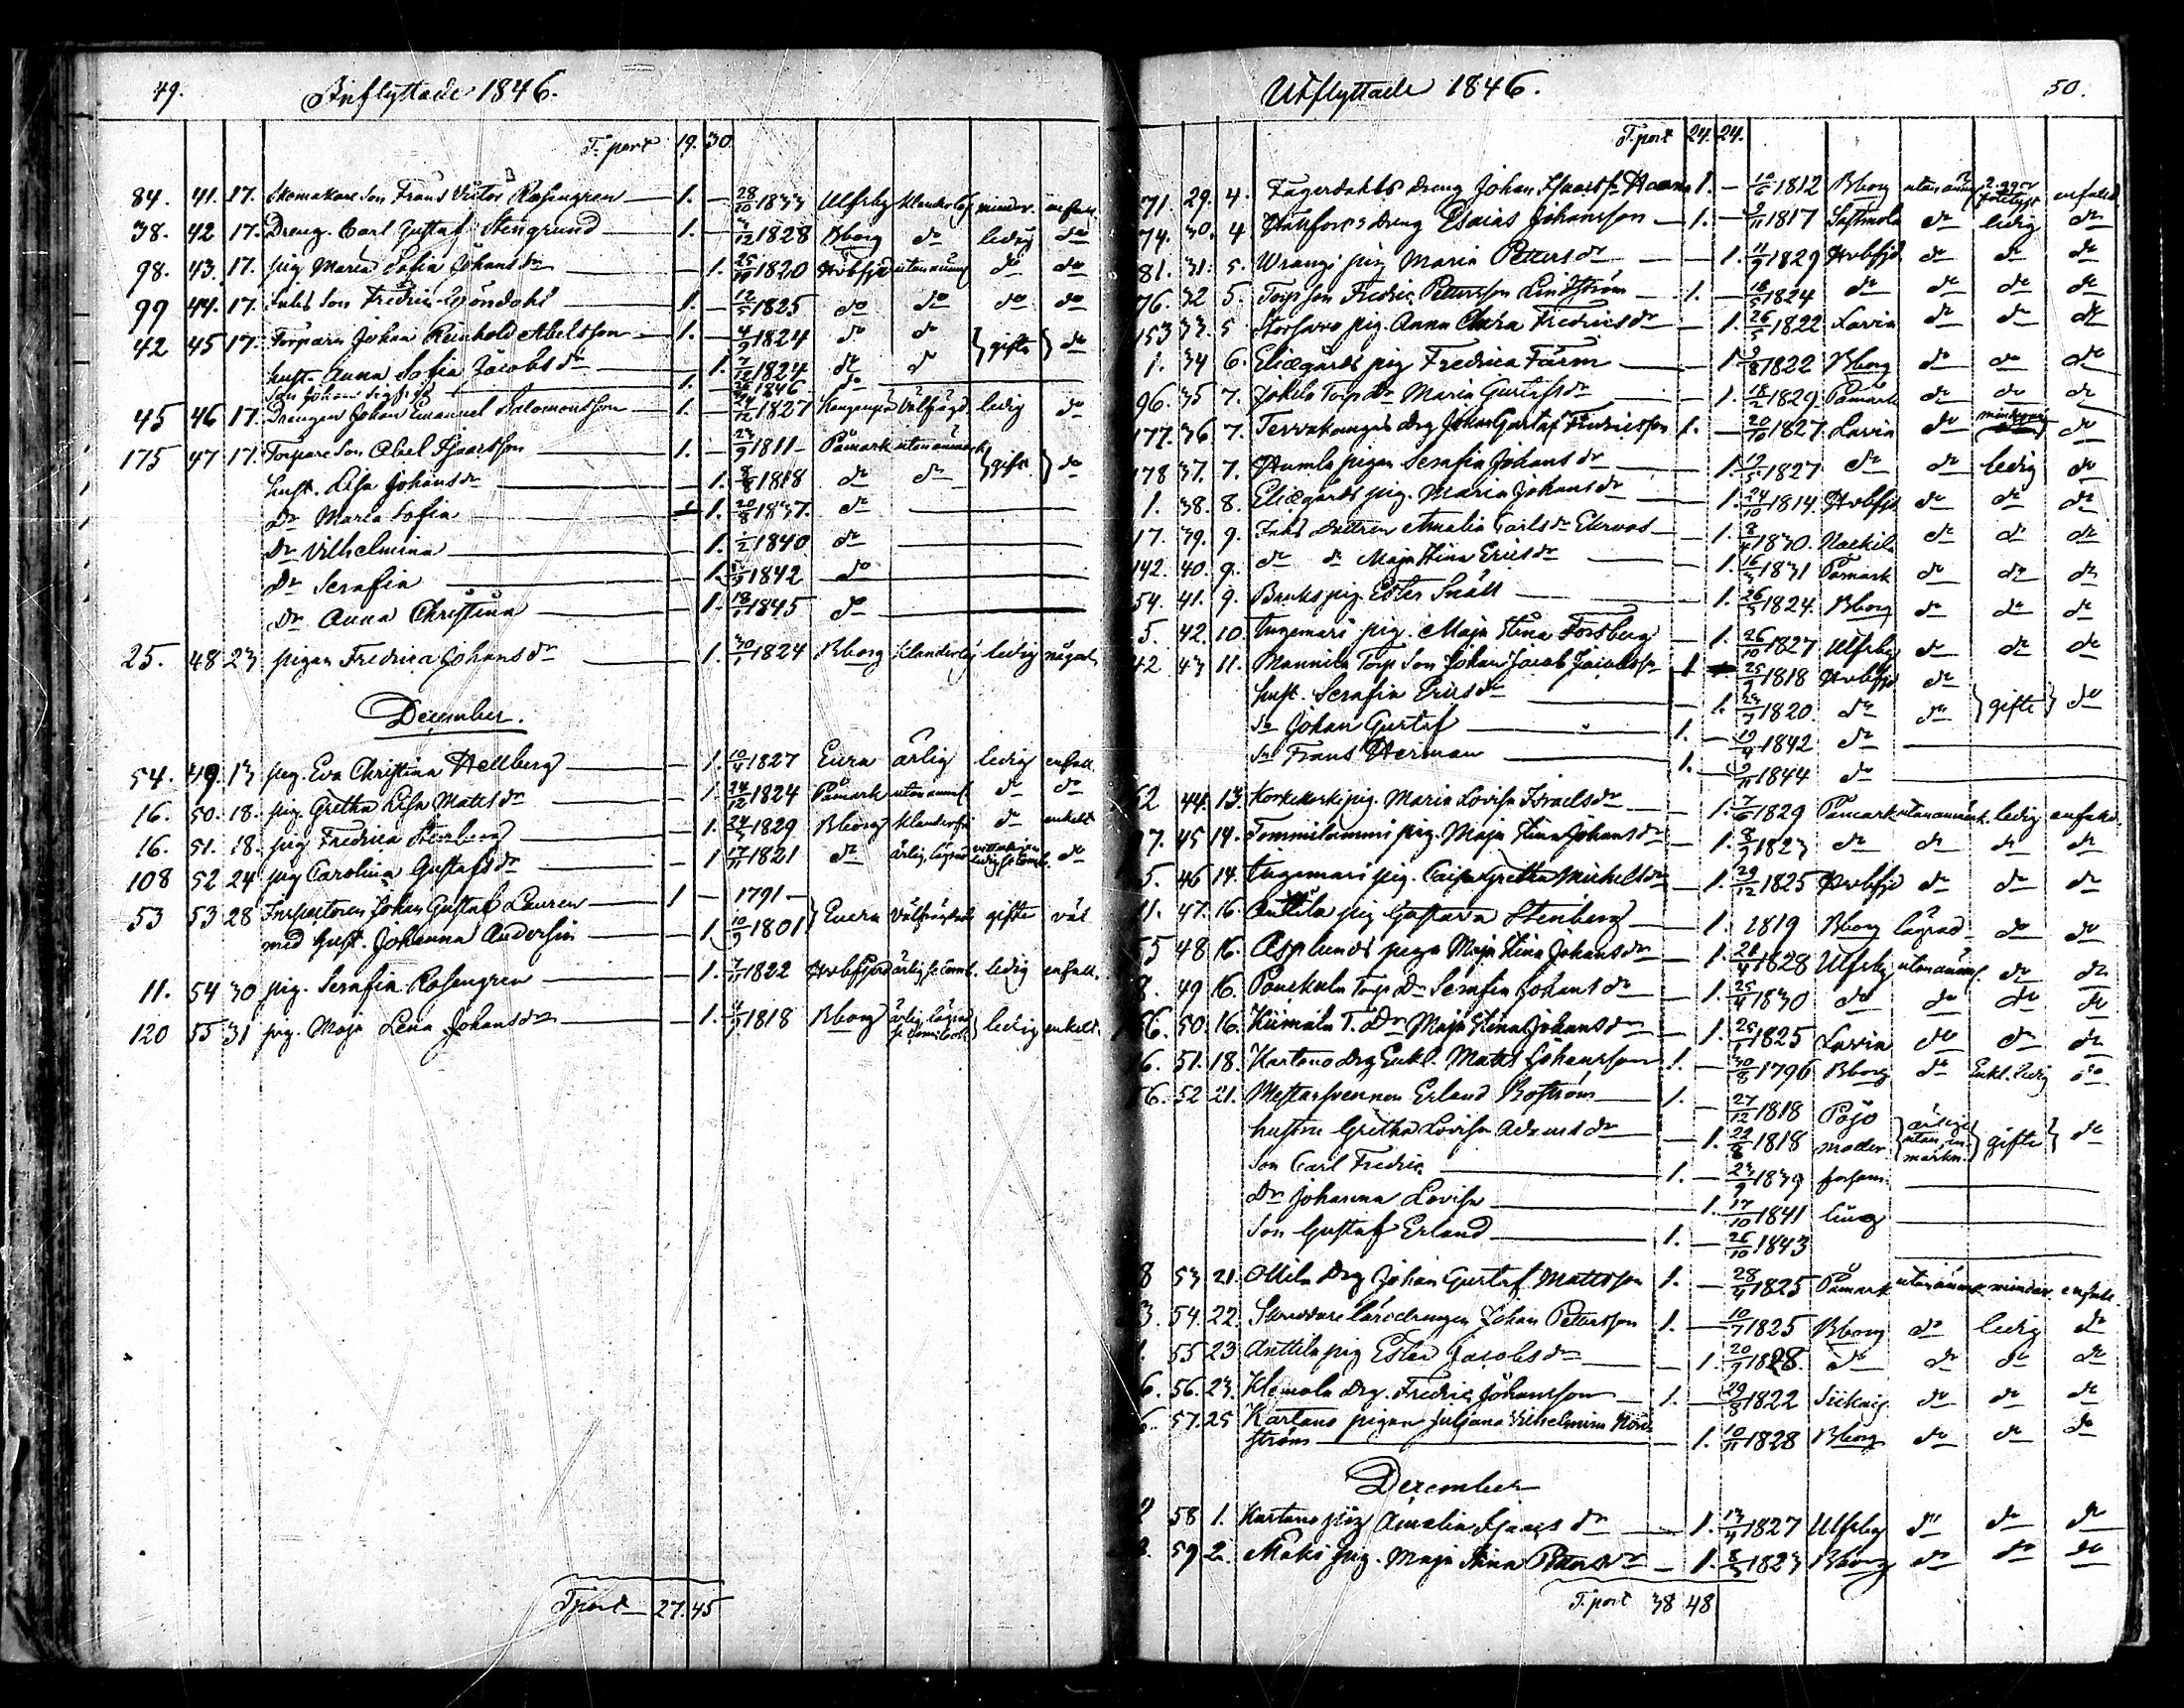 49. Inflyttade 1846.
T. port 19. 30.
84. 41. 17. Skomakare Son Frans Victor Rosengren — 1. — 28/10 1833 Ulfsby klanderlös minder. enfald.
38. 42 17. Dreng. Carl Gustaf Stengrund — 1. — 3/12 1828 Bborg do ledig do
98. 43. 17. pig. Maria Sofia Johansdr — 1. 1820 Hvbfjd utan anm do do
99 44. 17. Inhs Son Fredric Sjöndahl — 1. — 12/5 1825 do do do do
42 45 17. Torparn Johan Reinhold Abelsson — 1. — 4/9 1824 d. do } gifte } do
hust. Anna Sofia Jacobsdr — 1. 7/12 1824 do do
Son Johan 1. 1846 do
45 46 17. Drengen Johan Emanuel Salomonsson — 1. — 24/12 1827 välfrägd ledig do
175 47 17. Torpare Son Abel Isaacsson — 1. — 23/9 1811 — Påmark utan anmärk } gifte } do
hust. Lisa Johansdr — 1. 8/8 1818 do do
Dr Maria Sofia — 1. 20/8 1837. do
Dr Vilhelmina — 1. 1840 do
Dr Serafia — 1. 1842 do
Dr Anna Christina — 1. 1845 do
25. 48 23 pigan Fredrica Johansdr — 1. 1824 Bborg klanderlös ledig något
December.
54. 49. 13 pig. Eva Christina Hellberg — 1. 10/4 1827 Eura ärlig ledig enfall.
16. 50. 18. pig. Gretha Lisa Matsdr — 1. 24/12 1824 Påmark utan anm. do do
16. 51. 18. pig Fredrica Stenberg — 1. 1829 Bborg klanderfri do enkelt
108 52 24 pig Carolina Gustafsdr — 1 17/11 1821 do ärlig, lägrad do
53 53 28 Inspectoren Johan Gustaf Lauren — 1 — 1791 — } Eura välfrägdade gifte väl
med hust. Johanna Andersin — 1. 10/9 1801
11. 54 30 pig. Serafia Rosengren — 1. 7/11 1822 Hvbfjerd ärlig ledig enfall.
120 55 31 pig. Maja Lena Johansdr — 1. 1818 Bborg ärlig, lägrad } ledig enkelt.
Tport — 27. 45
Utflyttade 1846. 50.
T. port 24. 24.
71. 29. 4. Fagerdahls dreng Johan Isaacss. Haans 1. — 10/6 1812 Bborg utan anm enfald
74. 30. 4 dreng Esaias Johansson — 1. — 9/11 1817 Sastmola do ledig do
81. 31. 5. Wrangi pig Maria Petersdr — 1. 11/9 1829 Hvbfjd do do do
76. 32 5. Torp son Fredric Pettersson Lindström — 1. — 18/5 1824 do do do do
153 33. 5 Storsavo pig. Anna Clara Fredricsdr — 1. 26/5 1822 Lavia do do do
1. 34 6. Eliægårds pig Fredrica Färm — 1. 1822 Bborg do do do
96. 35 7. Jokela Torp Dr Maria Gustafsdr — 1. 18/2 1829. Påmark do do do
177. 36 7. Tervakangas drg Johan Gustaf Fredricsson 1. — 20/10 1827. Lavia do do
178 37. 7. Humla pigan Serafia Johansdr — 1. 1827 do do ledig do
1. 38. 8. Eliægårds pig. Maria Johansdr — 1. 24/10 1814. Hvbfjd do do do
17. 39. 9. Inhs dottren Amalia Carlsdr Ekroos — 1. 8/4 1830. Nackila do do do
142. 40. 9. do do Maja Stina Ericsdr — 1. 1831 Påmark do do do
54. 41. 9. Bruks pig. Ester Snäll — 1. 26/5 1824. Bborg do do do
5. 42. 10. Ingemari pig. Maja Stina Forsberg — 1. 26/10 1827 Ulfsby do do do
42 43 11. Mannila Torp Son Johan Jacob Jacobsson 1. 25/9 1818 Hvbfjd do
hust. Serafia Ericsdr — 1. 1820. do do } gifte } do
Sn Johan Gustaf — 1. — 19/9 1842 do
Sn Frans Herman — 1. — 9/11 1844 do
62 44. 13. Korkekoski pig. Maria Lovisa Israelsdr — 1. 7/6 1829 Påmark utan anmärk. ledig enfald.
97. 45 14. Tommilammi pig. Maja Stina Johansdr — 1. 1823 do do do do
5. 46 14. Ingemari pig. Caisa Gretha Michelsdr — 1. 29/12 1825 Hvbfjd do do do
11. 47. 16. Anttila pig Gustava Stenberg — 1. 1819 Bborg lägrad do do
55 48 16. Asplunds piga Maja Stina Johansdr — 1. 1828 Ulfsby utan anm. do do
8. 49 16. Torp Dr Serafia Johansdr — 1. 25/4 1830 do do do do
66. 50. 16. Kiimala T. Dr Maja Stina Johansdr — 1. 1825 Lavia do do do
6. 51. 18. Kartano drg Enkl. Mats Johansson 1. — 30/8 1796 Bborg do Enkl. ledig do
56. 52 21. Mestarsvennen Erland Boström — 1. — 27/12 1818 Pojo
hustru Gretha Lovisa Adamsdr — 1. 22/6 1818 moder } ärliga utan anmärkn. } gifte } do
Son Carl Fredric — 1. — 23/9 1839 forsam
Dr Johanna Lovisa — 1. 17/10 1841 ling
Son Gustaf Erland — 1. — 26/10 1843
8 53 21. Ollila drg Johan Gustaf Mattsson 1. — 28/4 1825 Påmark utan anmärk minder. enfald.
3. 54. 22. Skreddare läredrengen Johan Petersson 1. — 10/7 1825 Bborg do ledig do
1. 55 23 Anttila pig Ester Jacobsdr — 1. 20/9 1828. do do do do
6. 56. 23. Klemola drg. Fredric Johansson — 1. — 29/8 1822 Siikais do do do
6. 57. 25 Kartano pigan Juliana Vilhelmina Nord
ström — 1. 10/11 1828 Bborg do do do
December
2 58 1. Kartano pig Amalia Isaacsdr — 1. 13/4 1827 Ulfsby do do do
59 2. Mäki pig. Maja Stina Petersdr — 1. 1823 Bborg do do do
T. port 38 48